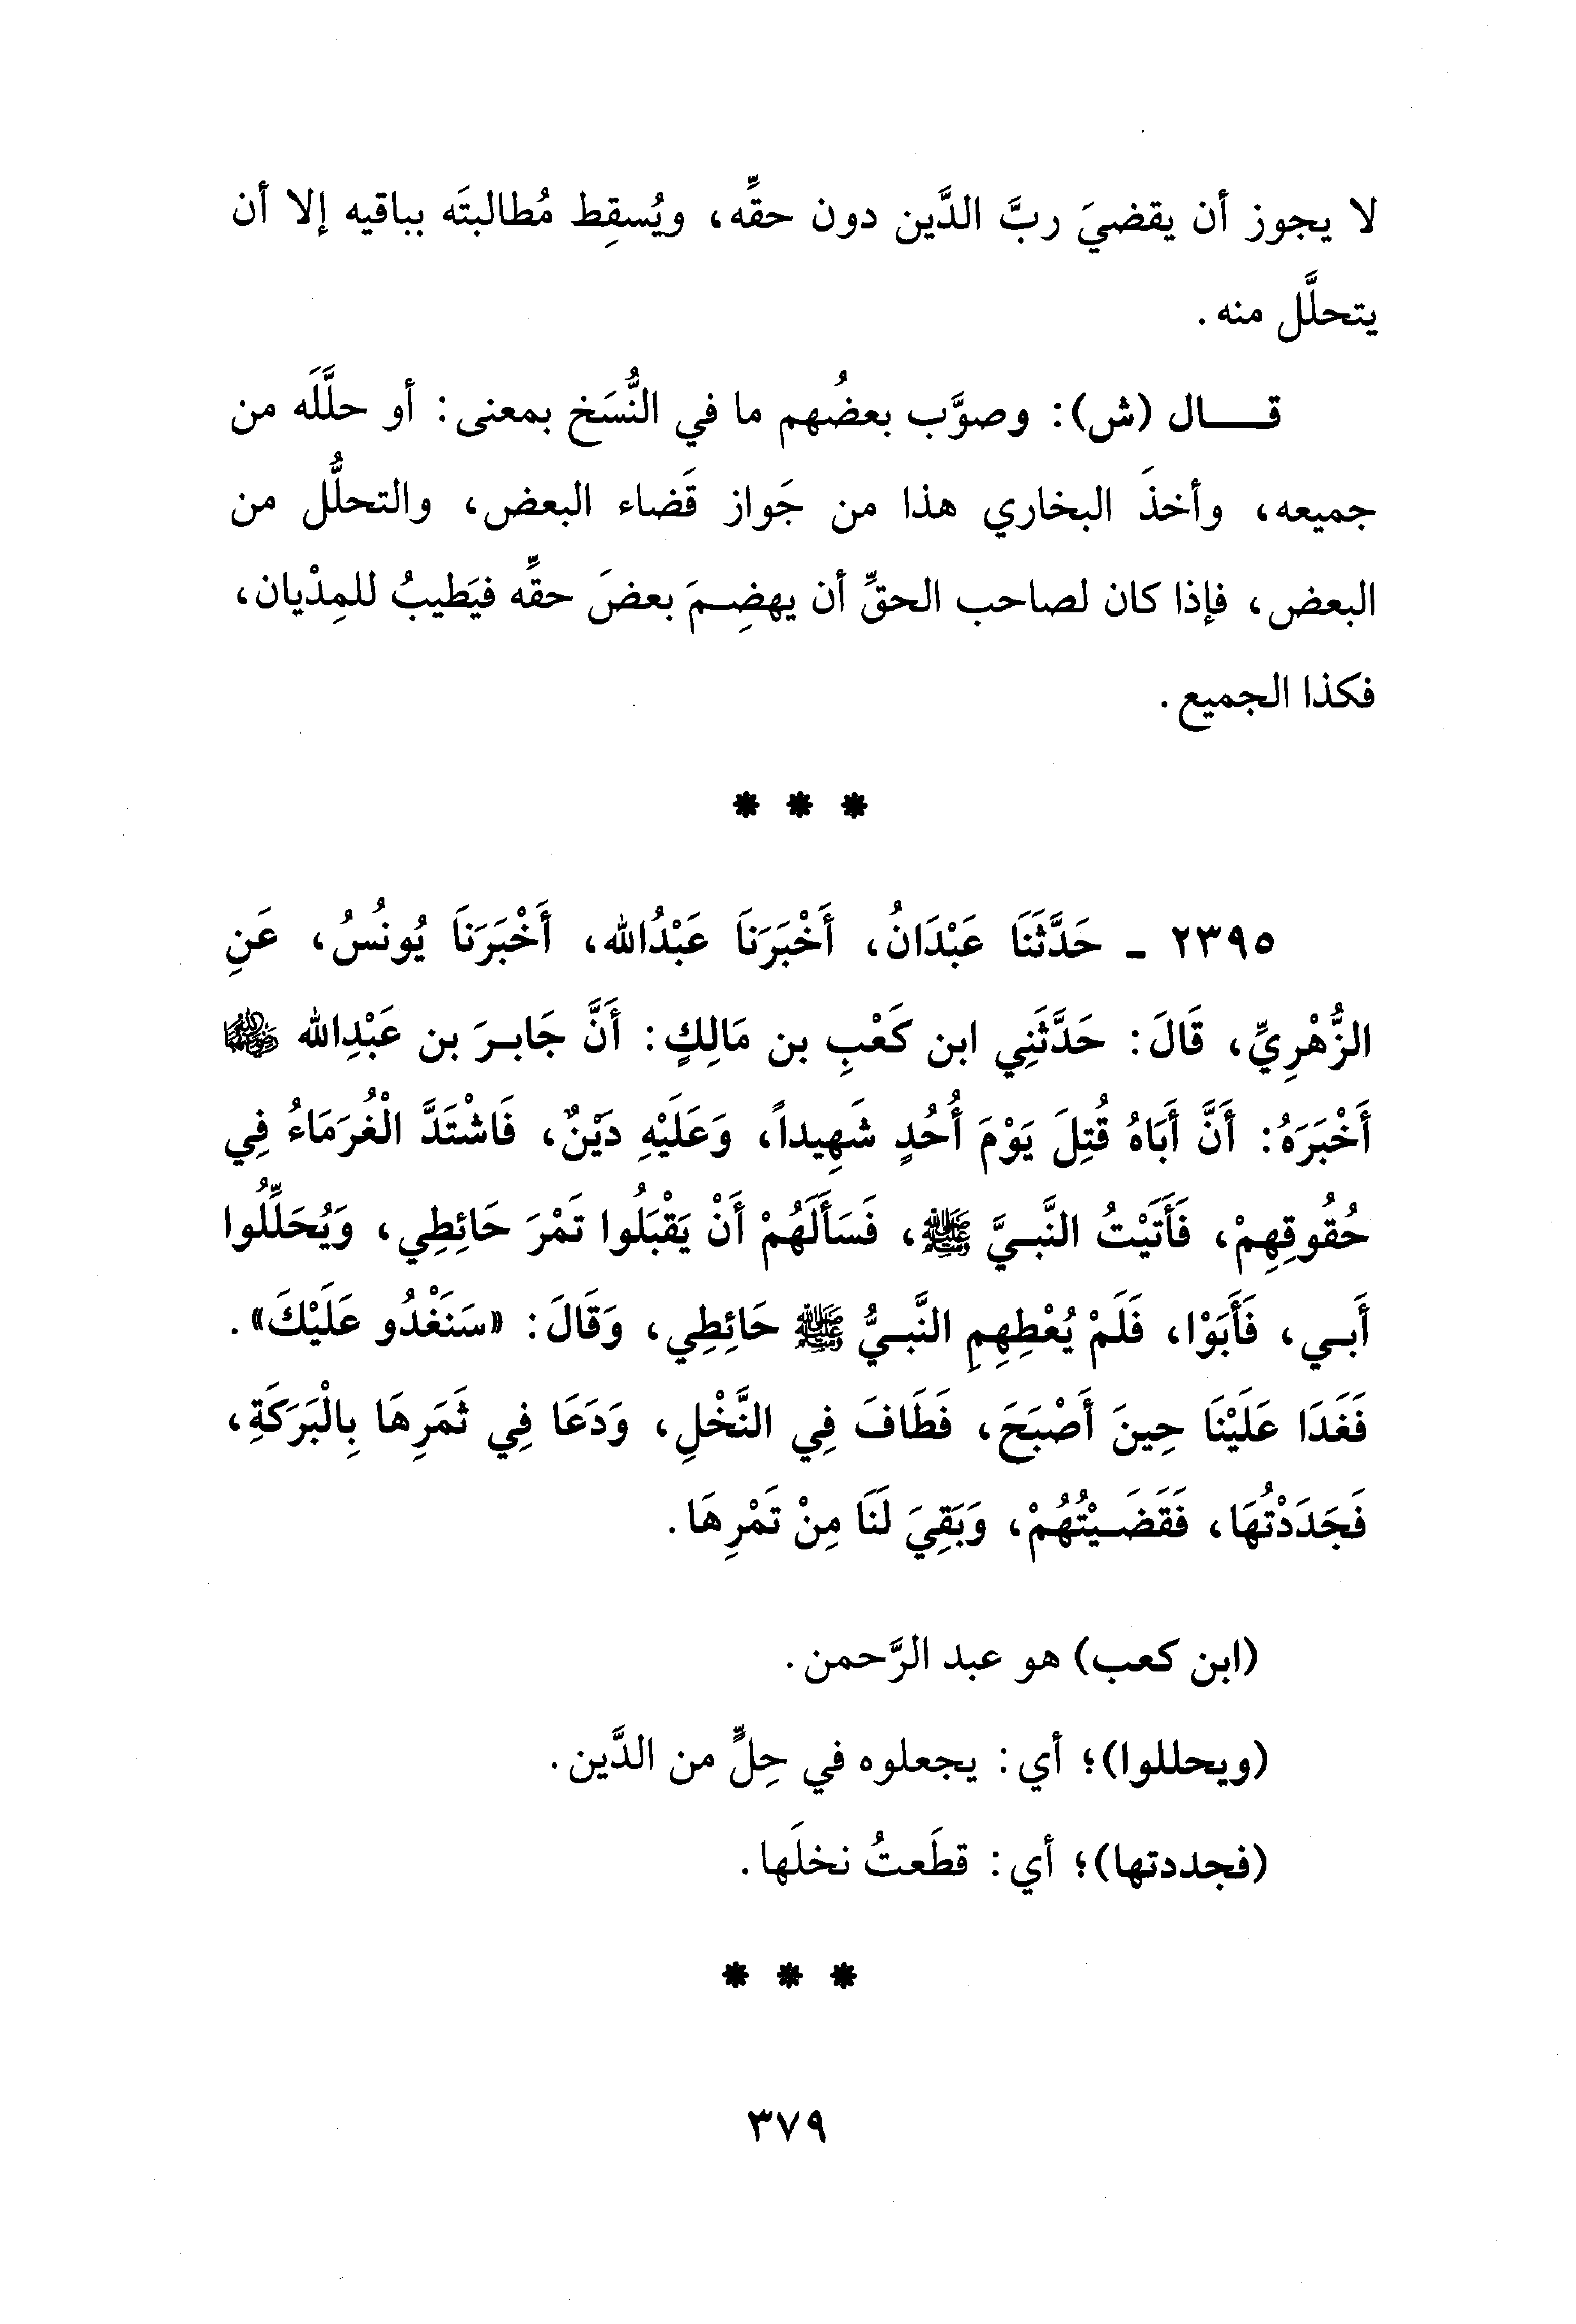 لا يجوز أن يقضيَ ربَّ الدَّين دون حقِّه، ويُسقِط مُطالبتَه بباقيه إلا أن
يتحلَّل منه.
قـــال (ش): وصوَّب بعضُهم ما في النُّسَخ بمعنى: أو حلَّلَه من
جميعه، وأخذَ البخاري هذا من جَواز قَضاء البعض، والتحلُّل من
البعض، فإذا كان لصاحب الحقِّ أن يهضِـمَ بعضَ حقِّه فيَطيبُ للمِدْيان،
فكذا الجميع.
* * *
٢٣٩٥ - حَدَّثَنَا عَبْدَانُ، أَخْبَرَنَا عَبْدُالله، أَخْبَرَنَا يُونُسُ، عَنِ
الزُّهْرِيِّ، قَالَ: حَدَّثَنِي ابن كَعْبِ بن مَالِكٍ: أَنَّ جَابـرَ بن عَبْدِالله رضي الله عنهما
أَخْبَرَهُ: أَنَّ أَبَاهُ قُتِلَ يَوْمَ أُحُدٍ شَهِيداً، وَعَلَيْهِ دَيْنٌ، فَاشْتَدَّ الْغُرَمَاءُ فِي
حُقُوقِهِمْ، فَأَتَيْتُ النَّبـيَّ ﷺ، فَسَأَلَهُمْ أَنْ يَقْبَلُوا تَمْرَ حَائِطِي، وَيُحَلِّلُوا
أَبـي، فَأَبَوْا، فَلَمْ يُعْطِهِمِ النَّبـيُّ ﷺ حَائِطِي، وَقَالَ: «سَنَغْدُو عَلَيْكَ».
فَغَدَا عَلَيْنَا حِينَ أَصْبَحَ، فَطَافَ فِي النَّخْلِ، وَدَعَا فِي ثَمَرِهَا بِالْبَرَكَةِ،
فَجَدَدْتُهَا، فَقَضَـيْتُهُمْ، وَبَقِيَ لَنَا مِنْ تَمْرِهَا.
(ابن كعب) هو عبد الرَّحمن.
(ويحللوا)؛ أي: يجعلوه في حِلٍّ من الدَّين.
(فجددتها)؛ أي: قطَعتُ نخلَها.
* * *
٣٧٩